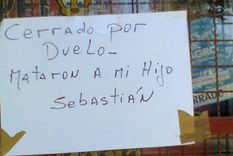 Cerrado por
Duelo_
Mataron a mi Hijo
Sebastián
RRADO